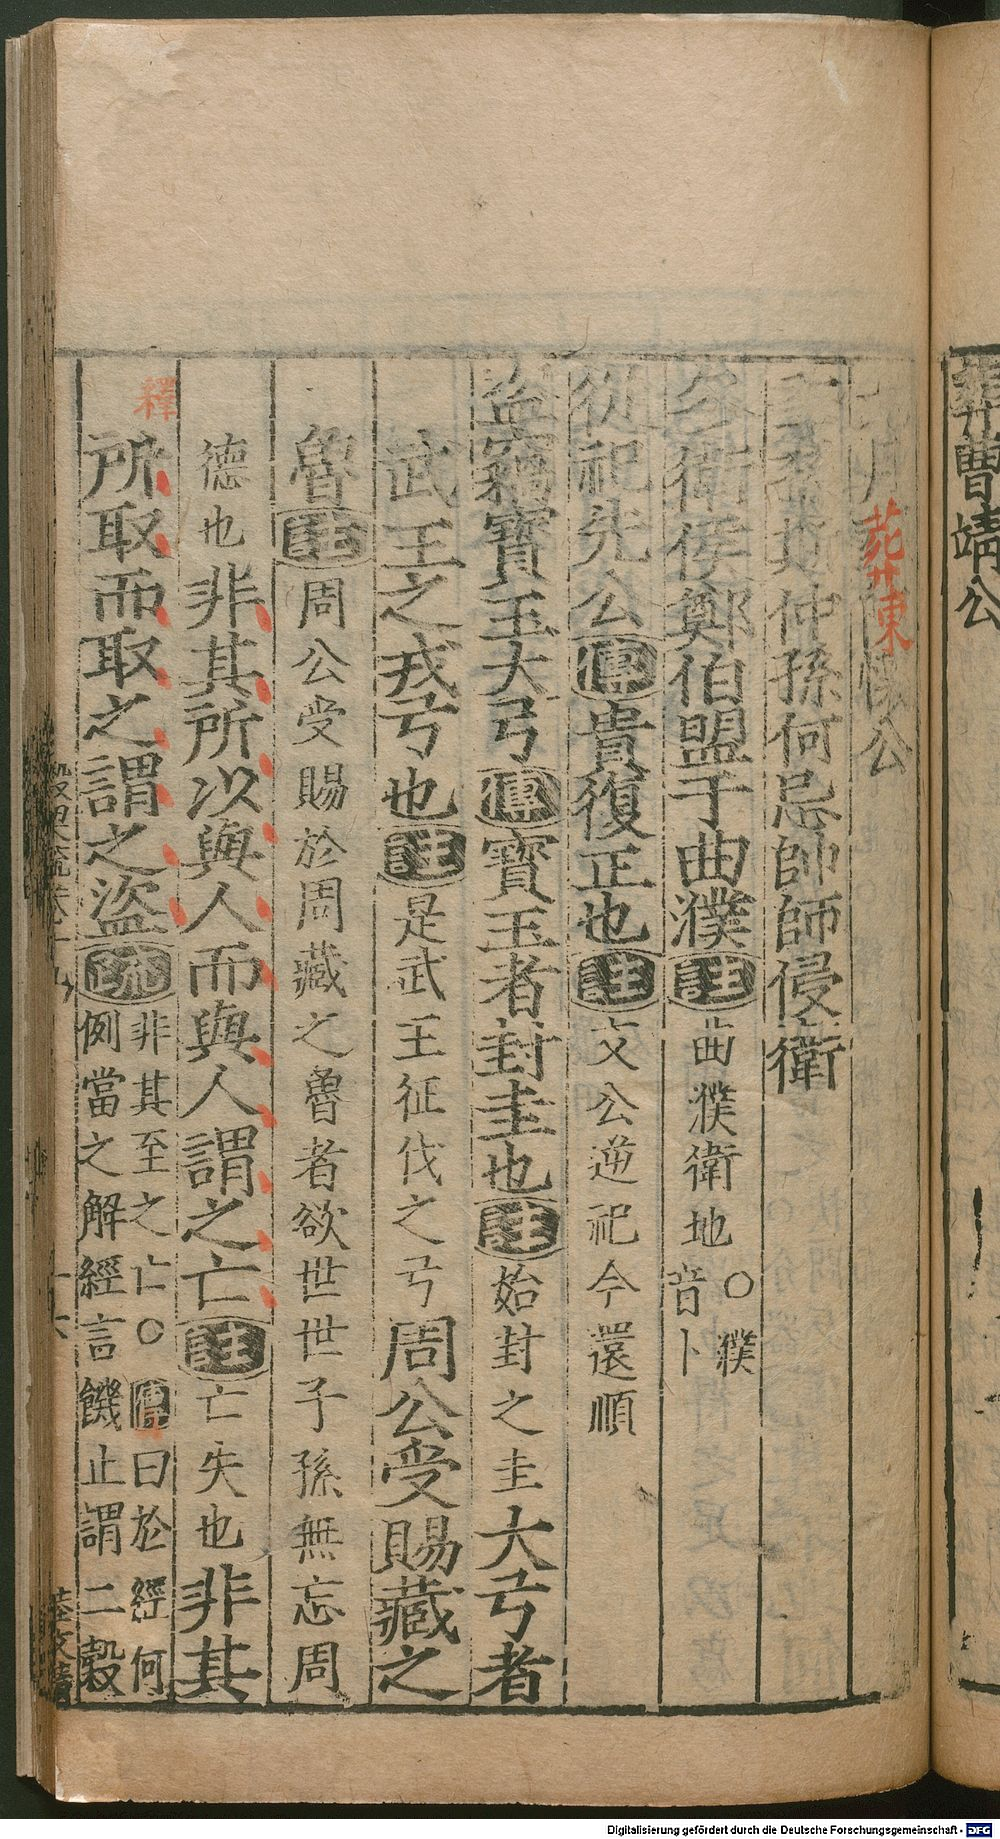 葬曹靖公
葬陳懷公
季孫斯仲孫何忌帥師侵衛
冬衛侯鄭伯盟于曲濮 註 曲濮衛地 ○濮音卜
從祀先公 傳 貴復正也 註 文公逆祀今還順
盜竊寶玉大弓 傳 寶玉者封圭也 註 始封之圭 大弓者
武王之戎弓也 註 是武王征伐之弓 周公受賜藏之
魯 註 周公受賜於周藏之魯者欲世世子孫無忘周
德也 非其所以與人而與人謂之亡 註 亡失也 非其
所取而取之謂之盜 疏 非其至之亡○傳曰於經何
例當之解經言饑止謂二穀
釋
葬東
穀梁疏卷十九
十六
Digitalisierung gefördert durch die Deutsche Forschungsgemeinschaft - DFG